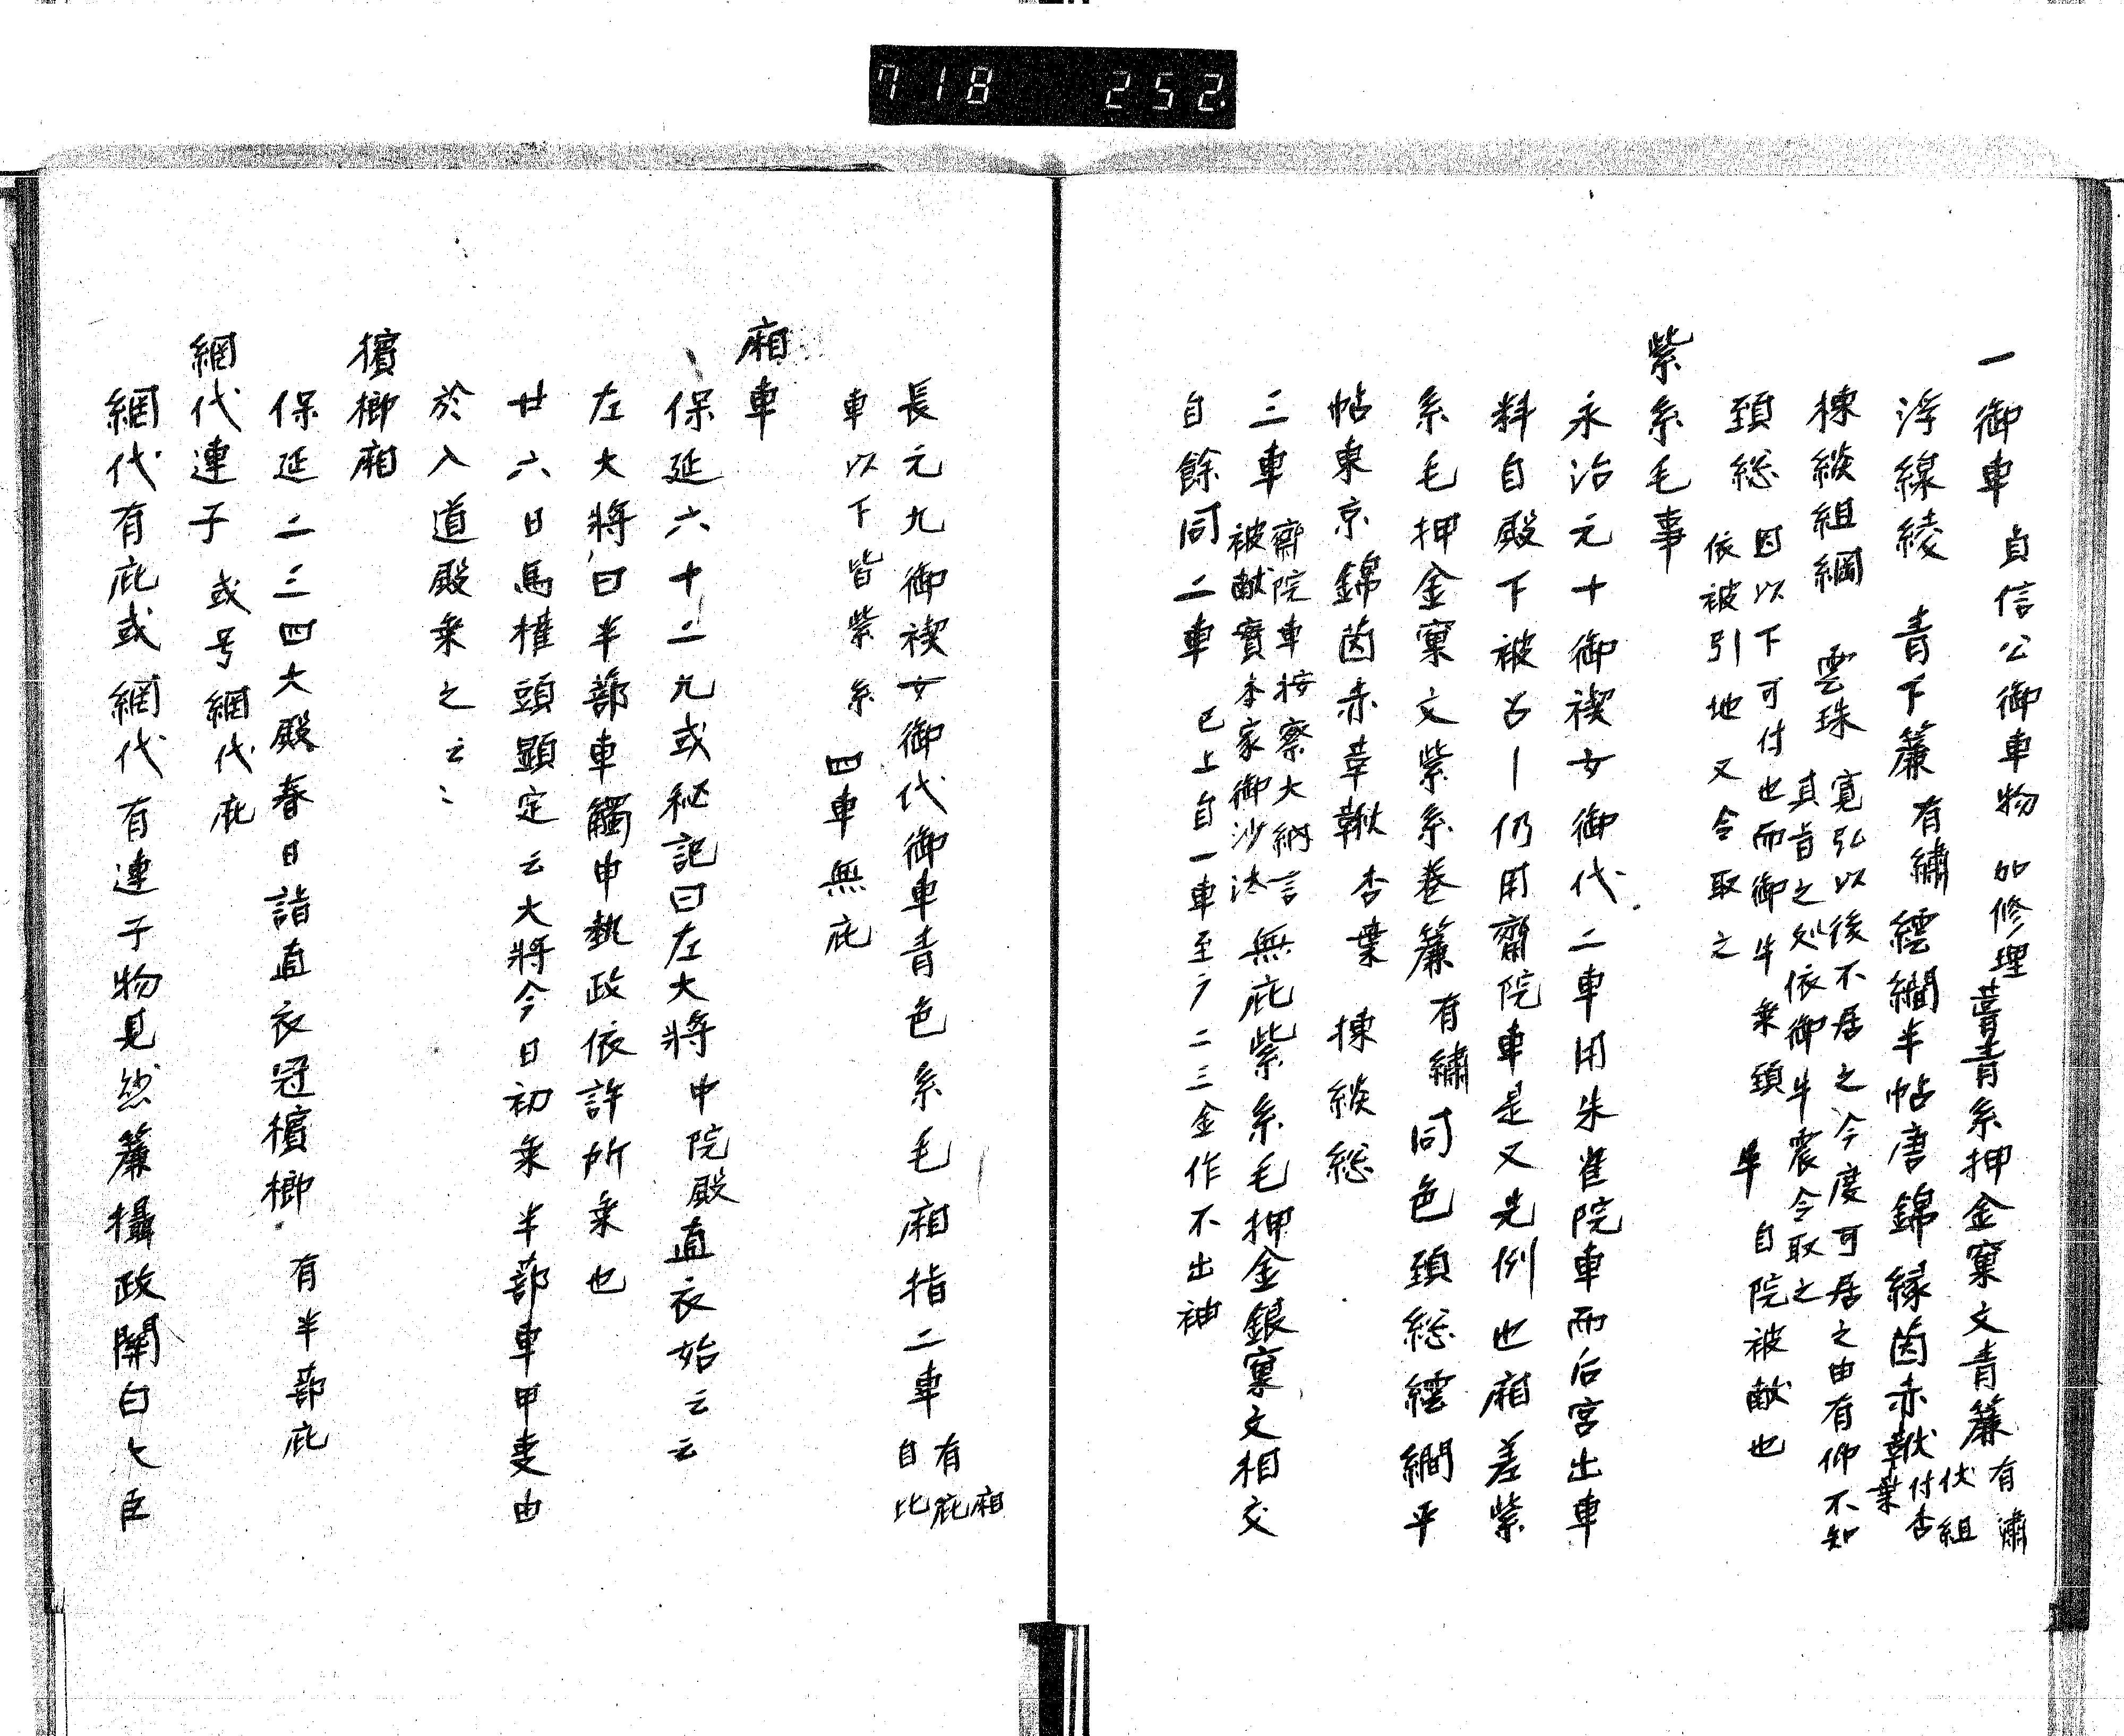 718 252.
一御車 貞信公御車物 如修理 葺青糸押金窠文青簾 有繍
浮線綾 青下簾 有繍 繧繝半帖唐錦縁茵赤鞦 伏組付杏葉
楝緂組綱 雲珠 寛弘以後不居之今度可居之由有仰不知
其旨之処依御牛震令取之
頚総 因以下可付也而御牛乗頚 牛 自院被献也
依被引地又令取之
紫糸毛事
永治元十御禊女御代二車用朱雀院車而后宮出車
料自殿下被召丨仍用齋院車是又先例也廂差紫
糸毛押金窠文紫糸巻簾 有繍 同色頚総繧繝平
帖東京錦茵赤革鞦 杏葉 楝緂総
三車 齋院車按察大納言
被献實本家御沙汰 無庇紫糸毛押金銀窠文相交
自餘同二車 已上自一車至于二三金作不出袖
長元九御禊女御代御車青色糸毛廂指二車 有庇廂
自比
車以下皆紫糸 四車無庇
廂車
保延六十二九或秘記曰左大将 中院殿 直衣始云云
左大将曰半蔀車觸申執政依許所乗也
廿六日馬權頭顕定云大将今日初乗半蔀車甲吏由
於入道殿乗之云〻
檳榔廂
保延二三四大殿春日詣直衣冠檳榔 有半蔀庇
網代連子 或号網代庇
網代有庇或網代有連子物見然簾攝政關白大臣